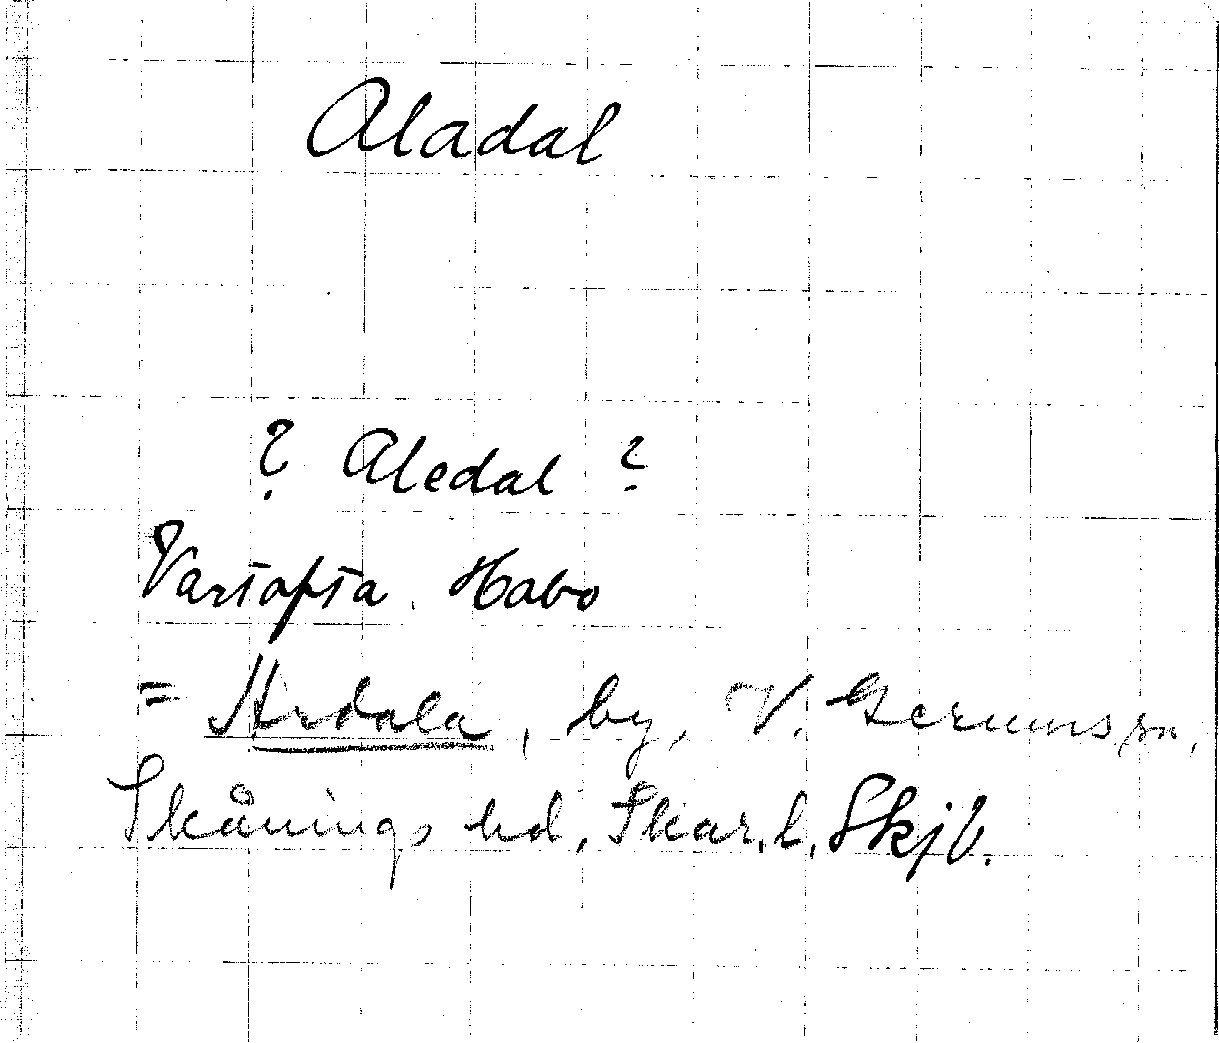 Aladal
? Aledal ?
Vartofta. Habo
= Ardala, by, V. Gerums sn,
Skånings hd, Skar. l. Skjb.